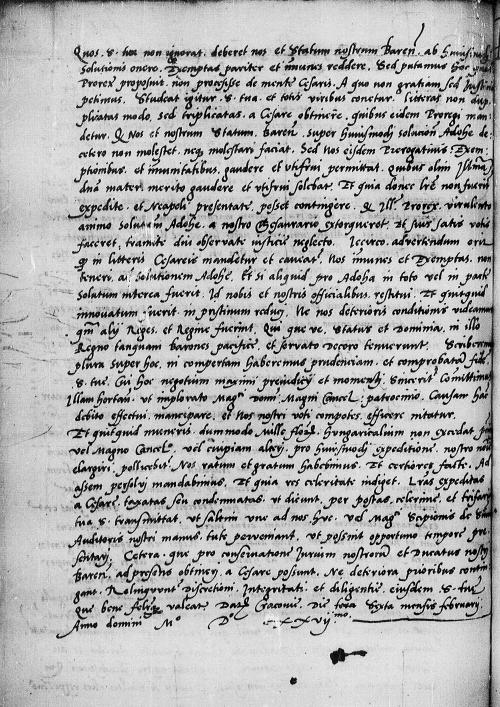 Quos. S. tua non ignorat. deberet nos et Statum nostrum Baren̄. ab huiusmodi
solutionis onere. Exemptas pariter et imunes reddere. Sed putamus hoc quod
Prorex proposuit. non processisse de mente Cesaris. A quo non gratiam sed Iustitiam
petimus. Studeat igitur. S. tua. et totis viribus conetur. litteras non dup-
plicatas modo, sed triplicatas. a Cesare obtinere, quibus eidem Proregi man-
detur. Q Nos et nostrum Statum. Baren̄. super huiusmodj solucion Adohe de
cetero non molestet. neq molestari faciat. Sed nos eisdem Prerogatiuis. Exem-
ptionibus. et imunitatibus, gaudere et vtifrui permittat. quibus olim Illma
dn̄a mater. merito gaudere et vtifrui solebat. Et quia donec lr̄e non fuerint
expedite. et Neapolj presentate, posset contingere. Q Ill. Prorex. virulento
animo solutam Adohe, a nostro Thesaurario extorqueret. Et suis satis votis
faceret, tramite diu obseruate iusticie neglecto. Iccirco. aduertendum erit
q in litteris Cesareis mandetur et caueat. Nos imunes et Exemptas. non
teneri. ad solutionem Adohe. Et si aliquid pro Adoha in toto vel in parte
Solutum interea fuerit. Id nobis et nostris officialibus restitui. Et quitquid
innouatum fuerit in pristinum redugj. Ne nos deterioris conditionis videamur
qm̄ alij Reges. et Regine fuerint. Qui que ve. Status et Dominia. in illo
Regno tanquam Barones pacifice, et seruato Decoro tenuerunt. Scriberemus
plura super hoc, ni compertam haberemus prudenciam. et comprobatam fidem
S. tue. Cui hoc negotium maximi preiudicij et momentj. Sinceriter Comittimus
Illam hortan. vt implorato Magci Domi Magni Cancel. patrocinio. Causam hanc
debito effectui. mancipare. et Nos nostri voti compotes. efficere nitatur.
Et quitquid muneris. dummodo mille floren̄. Hungaricalium non excedat
vel Magno Cancel. vel cuipiam alterj. pro huiusmodj expeditione. nostro nomine
elargiri. pollucebit. Nos ratum et gratum habebimus. Et certiores facte. Ad
assem persoluj mandabimus. Et quia res celeritate indiget. Lr̄as expeditas
a Cesare, taxatas seu condemnatas. vt dicunt. per postas, celerime, et trifariam
tua S. transmittat. vt saltim vne ad nos huc. vel Magci Scipionis de Summa
Auditoris nostri manus, tute perueniant. vt possint opportuno tempore pre-
sentarj. Cetera. que pro conseruatione Iurium nostrorum et Ducatus nostri
Baren̄. ad presens obtinerj. a Cesare possunt. Ne deteriora prioribus contin-
gant. Relinquunt Discretioni. Integritati et diligentie, eiusdem S. tue
Que bene felix valeat. Datis Gracouie. Die sexta mensis februarij
Anno domini Mo Do xxvijmo.